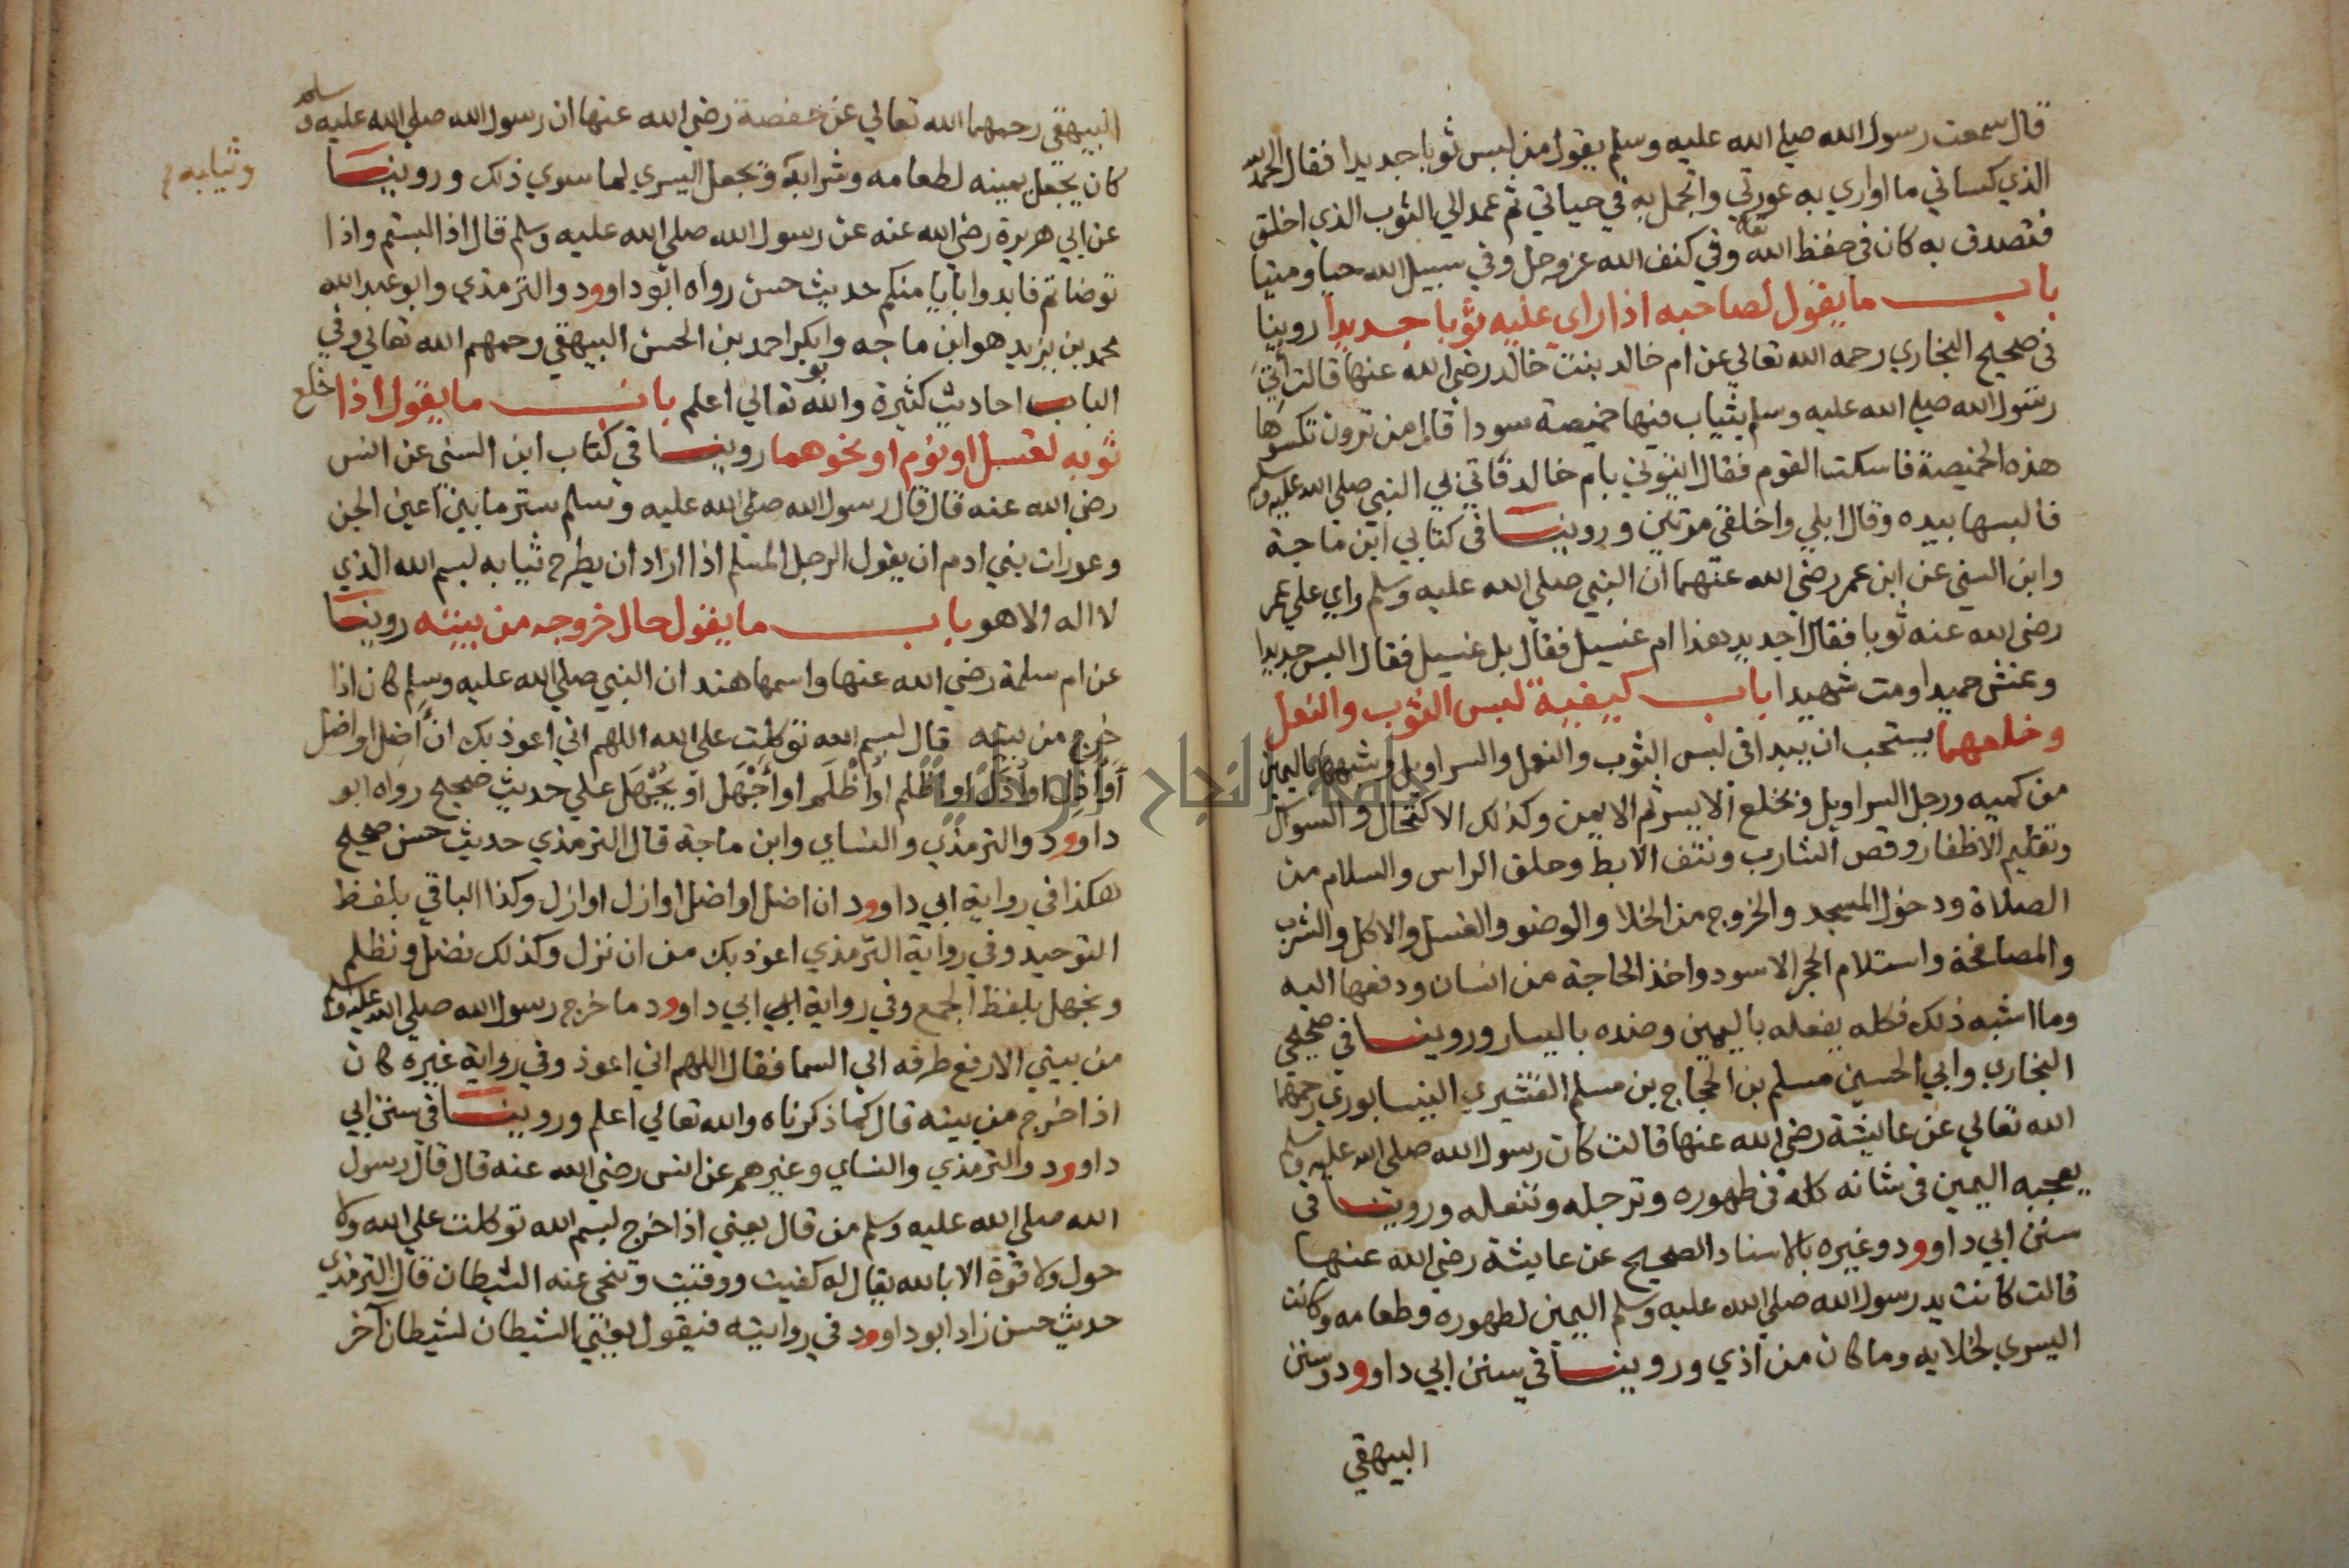 قال سمعت رسول الله صلي الله عليه وسلم يقول من لبس ثوبا جديدا فقال الحمد لله
الذي كساني ما اواري به عورتي واتجمل به في حياتي ثم عمد الي الثوب الذي اخلق
فتصدق به كان في حفظ الله تعالي وفي كنف الله عز وجل وفي سبيل الله حيا وميتا
باب ما يقول لصاحبه اذا راي عليه ثوبا جديدا روينا
في صحيح البخاري رحمه الله تعالي عن ام خالد بنت خالد رضي الله عنها قالت اتي
رسول الله صلي الله عليه وسلم بثياب فيها خميصة سودا قال من ترون نكسوها
هذه الخميصة فاسكت القوم فقال ائتوني بام خالد فاتي بي النبي صلي الله عليه وسلم
فالبسها بيده وقال ابلي واخلقي مرتين وروينا في كتابي ابن ماجة
وابن السني عن ابن عمر رضي الله عنهما ان النبي صلي الله عليه وسلم راي علي عمر
رضي الله عنه ثوبا فقال اجديد هذا ام غسيل فقال بل غسيل فقال البس جديدا
وعش حميدا ومت شهيدا باب كيفية لبس الثوب والنعل
وخلعهما يستحب ان يبدا في لبس الثوب والنعل والسراويل وشبهها باليمين
من كميه ورجل السراويل ويخلع الايسر ثم الايمن وكذلك الاكتحال والسواك
وتقليم الاظفار وقص الشارب ونتف الابط وحلق الراس والسلام من
الصلاة ودخول المسجد والخروج من الخلا والوضو والغسل والاكل والشرب
والمصافحة واستلام الحجر الاسود واخذ الحاجة من انسان ودفعها اليه
وما اشبه ذلك فكله يفعله باليمين وضده باليسار وروينا في صحيحي
البخاري وابي الحسين مسلم بن الحجاج بن مسلم القشيري النيسابوري رحمهما
الله تعالي عن عايشة رضي الله عنها قالت كان رسول الله صلي الله عليه وسلم
يعجبه اليمين في شانه كله في طهوره وترجله وتنعله وروينا في
سنن ابي داوود وغيره بالاسناد الصحيح عن عايشة رضي الله عنها
قالت كانت يد رسول الله صلي الله عليه وسلم اليمين لطهوره وطعامه وكانت
اليسري لخلايه وما كان من اذي وروينا في سنن ابي داوود وسنن
البيهقي
البيهقي رحمهما الله تعالي عن حفصة رضي الله عنها ان رسول الله صلي الله عليه وسلم
كان يجعل يمينه لطعامه وشرابه ويجعل اليسري لما سوي ذلك وروينا
وثيابه
عن ابي هريرة رضي الله عنه عن رسول الله صلي الله عليه وسلم قال اذا لبستم واذا
توضاتم فابدوا بايامنكم حديث حسن رواه ابو داوود والترمذي وابو عبد الله
محمد بن يزيد هو ابن ماجه وابو بكر احمد بن الحسن البيهقي رحمهم الله تعالي وفي
الباب احاديث كثيرة والله تعالي اعلم باب ما يقول اذا خلع
ثوبه لغسل او نوم او نحوهما روينا في كتاب ابن السني عن انس
رضي الله عنه قال قال رسول الله صلي الله عليه وسلم ستر ما بين اعين الجن
وعورات بني ادم ان يقول الرجل المسلم اذا اراد ان يطرح ثيابه بسم الله الذي
لا اله الا هو باب ما يقول حال خروجه من بيته روينا
عن ام سلمة رضي الله عنها واسمها هند ان النبي صلي الله عليه وسلم كان اذا
خرج من بيته قال بسم الله توكلت علي الله اللهم اني اعوذ بك ان أضل او اضل
أو أذل او أذل او أظلم او أظلم او أجهل او يجهل علي حديث صحيح رواه ابو
داوود والترمذي والنساي وابن ماجة قال الترمذي حديث حسن صحيح
هكذا في رواية ابي داوود ان اضل او اضل او ازل او ازل وكذا الباقي بلفظ
التوحيد وفي رواية الترمذي اعوذ بك من ان نزل وكذلك نضل ونظلم
ونجهل بلفظ الجمع وفي رواية ابي ابي داوود ما خرج رسول الله صلي الله عليه وسلم
من بيتي الا رفع طرفه الي السما فقال اللهم اني اعوذ وفي رواية غيره كان
اذا خرج من بيته قال كما ذكرناه والله تعالي اعلم وروينا في سنن ابي
داوود والترمذي والنساي وغيرهم عن انس رضي الله عنه قال قال رسول
الله صلي الله عليه وسلم من قال يعني اذا خرج بسم الله توكلت علي الله ولا
حول ولا قوة الا بالله يقال له كفيت ووقيت وتنحي عنه الشيطان قال الترمذي
حديث حسن زاد ابو داوود في روايته فيقول يعني الشيطان لشيطان آخر
جامعة النجاح الوطنية